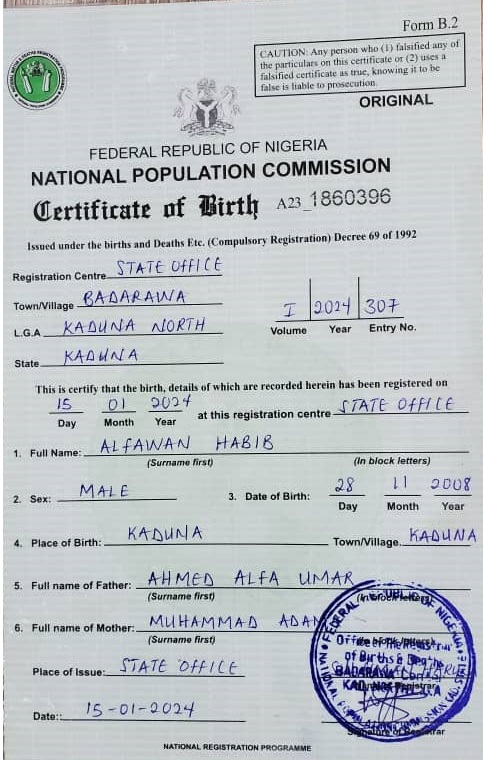 Form B.2
CAUTION: Any person who (1) falsified any of
the particulars on this certificate or (2) uses a
falsified certificate as true, knowing it to be
false is liable to prosecution.
ORIGINAL
FEDERAL REPUBLIC OF NIGERIA
NATIONAL POPULATION COMMISSION
Certificate of Birth A23_1860396
Issued under the births and Deaths Etc. (Compulsory Registration) Decree 69 of 1992
Registration Centre STATE OFFICE
Town/Village BADARAWA
L.G.A KADUNA NORTH
State KADUNA
I 2024 307
Volume Year Entry No.
This is certify that the birth, details of which are recorded herein has been registered on
15 01 2024 at this registration centre STATE OFFICE
Day Month Year
1. Full Name: ALFAWAN HABIB
(Surname first) (In block letters)
2. Sex: MALE 3. Date of Birth: 28 11 2008
Day Month Year
4. Place of Birth: KADUNA Town/Village. KADUNA
5. Full name of Father: AHMED ALFA UMAR
(Surname first) (In block letters)
6. Full name of Mother: MUHAMMAD
(Surname first)
Place of Issue: STATE OFFICE
Date:: 15-01-2024
Signature of Registrar
FEDERAL REPUBLIC OF NIGERIA
Of Births & Deaths
BADARAWA
NATIONAL REGISTRATION PROGRAMME